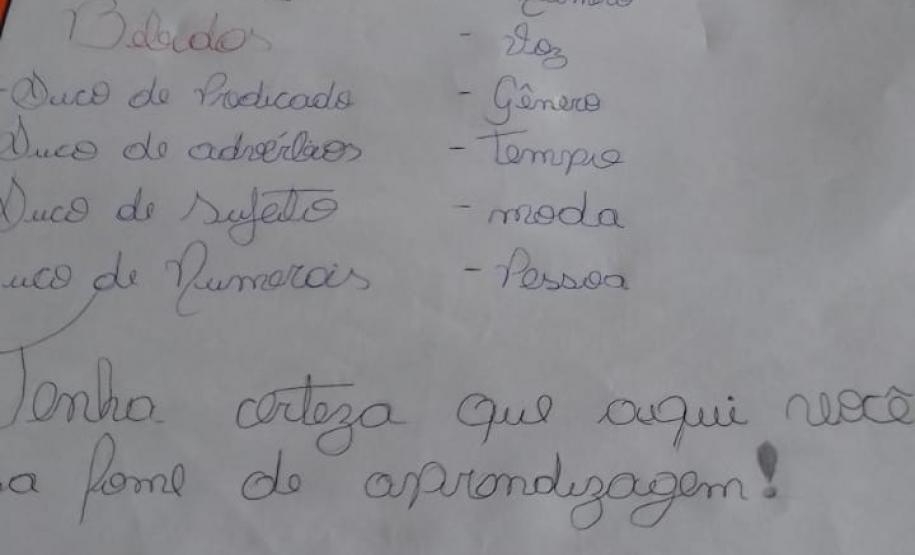 Bebidas
- Suco de Predicado
Suco de advérbios
Suco de sujeito
uco de Numerais
- Voz
- Gênero
- Tempo
- moda
- Pessoa
Tenha certeza que aqui você
a fome de aprendizagem!